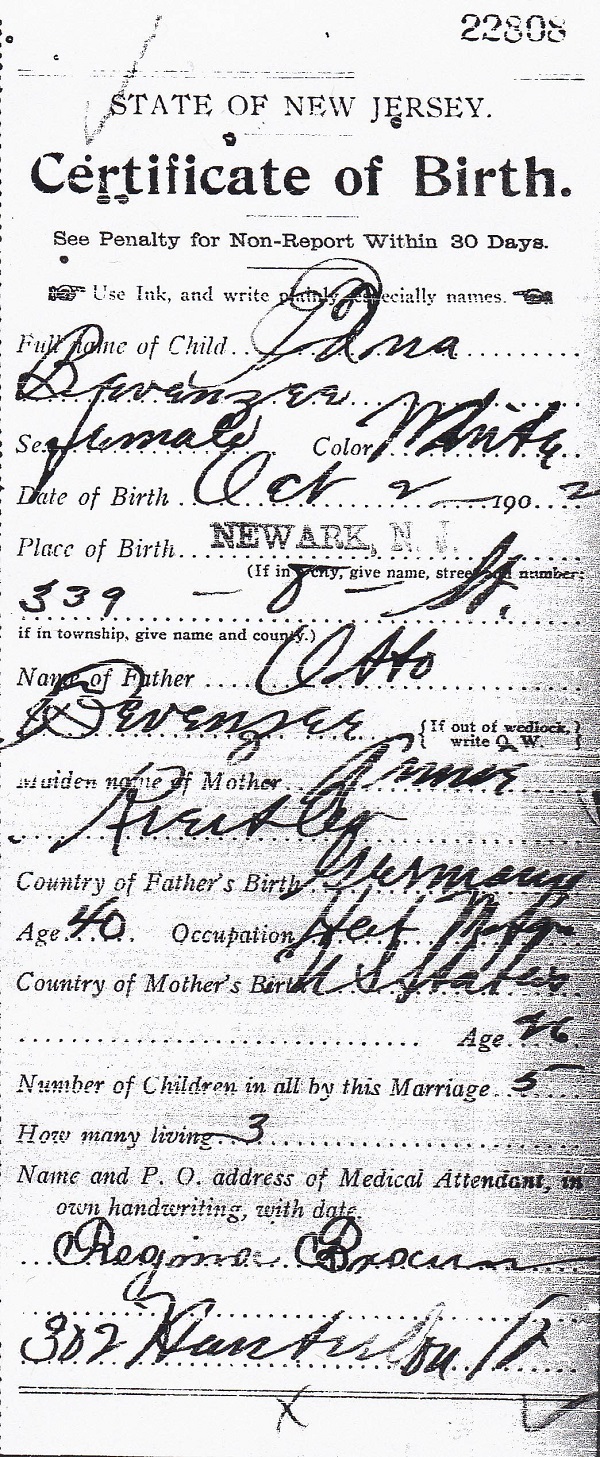 22808
STATE OF NEW JERSEY.
Certificate of Birth.
See Penalty for Non-Report Within 30 Days.
Use Ink, and write plainly especially names.
Full name of Child Edna
Bevenzee
Sex female Color White
Date of Birth Oct 2 1902
Place of Birth NEWARK, N. J.
(If in city, give name, street and number;
339 - 8 - St.
if in township, give name and county.)
Name of Father Otto
Bevenzee {If out of wedlock, write O. W.}
Maiden name of Mother
Country of Father's Birth Germany
Age 40 Occupation Hat Mfgr
Country of Mother's Birth U States
Age
Number of Children in all by this Marriage 5
How many living 3
Name and P. O. address of Medical Attendant, in
own handwriting, with date.
Regina Braun
302 Hunterdon St